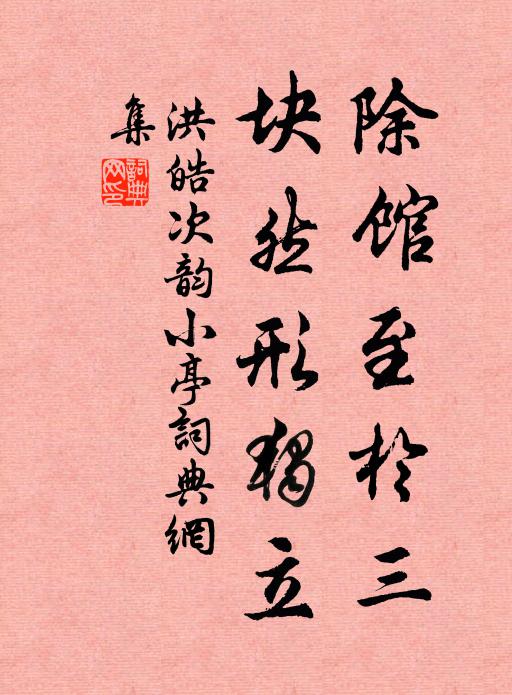 除馆至於三
块然形独立
洪皓次韵小亭詞典網
集
詞典网印